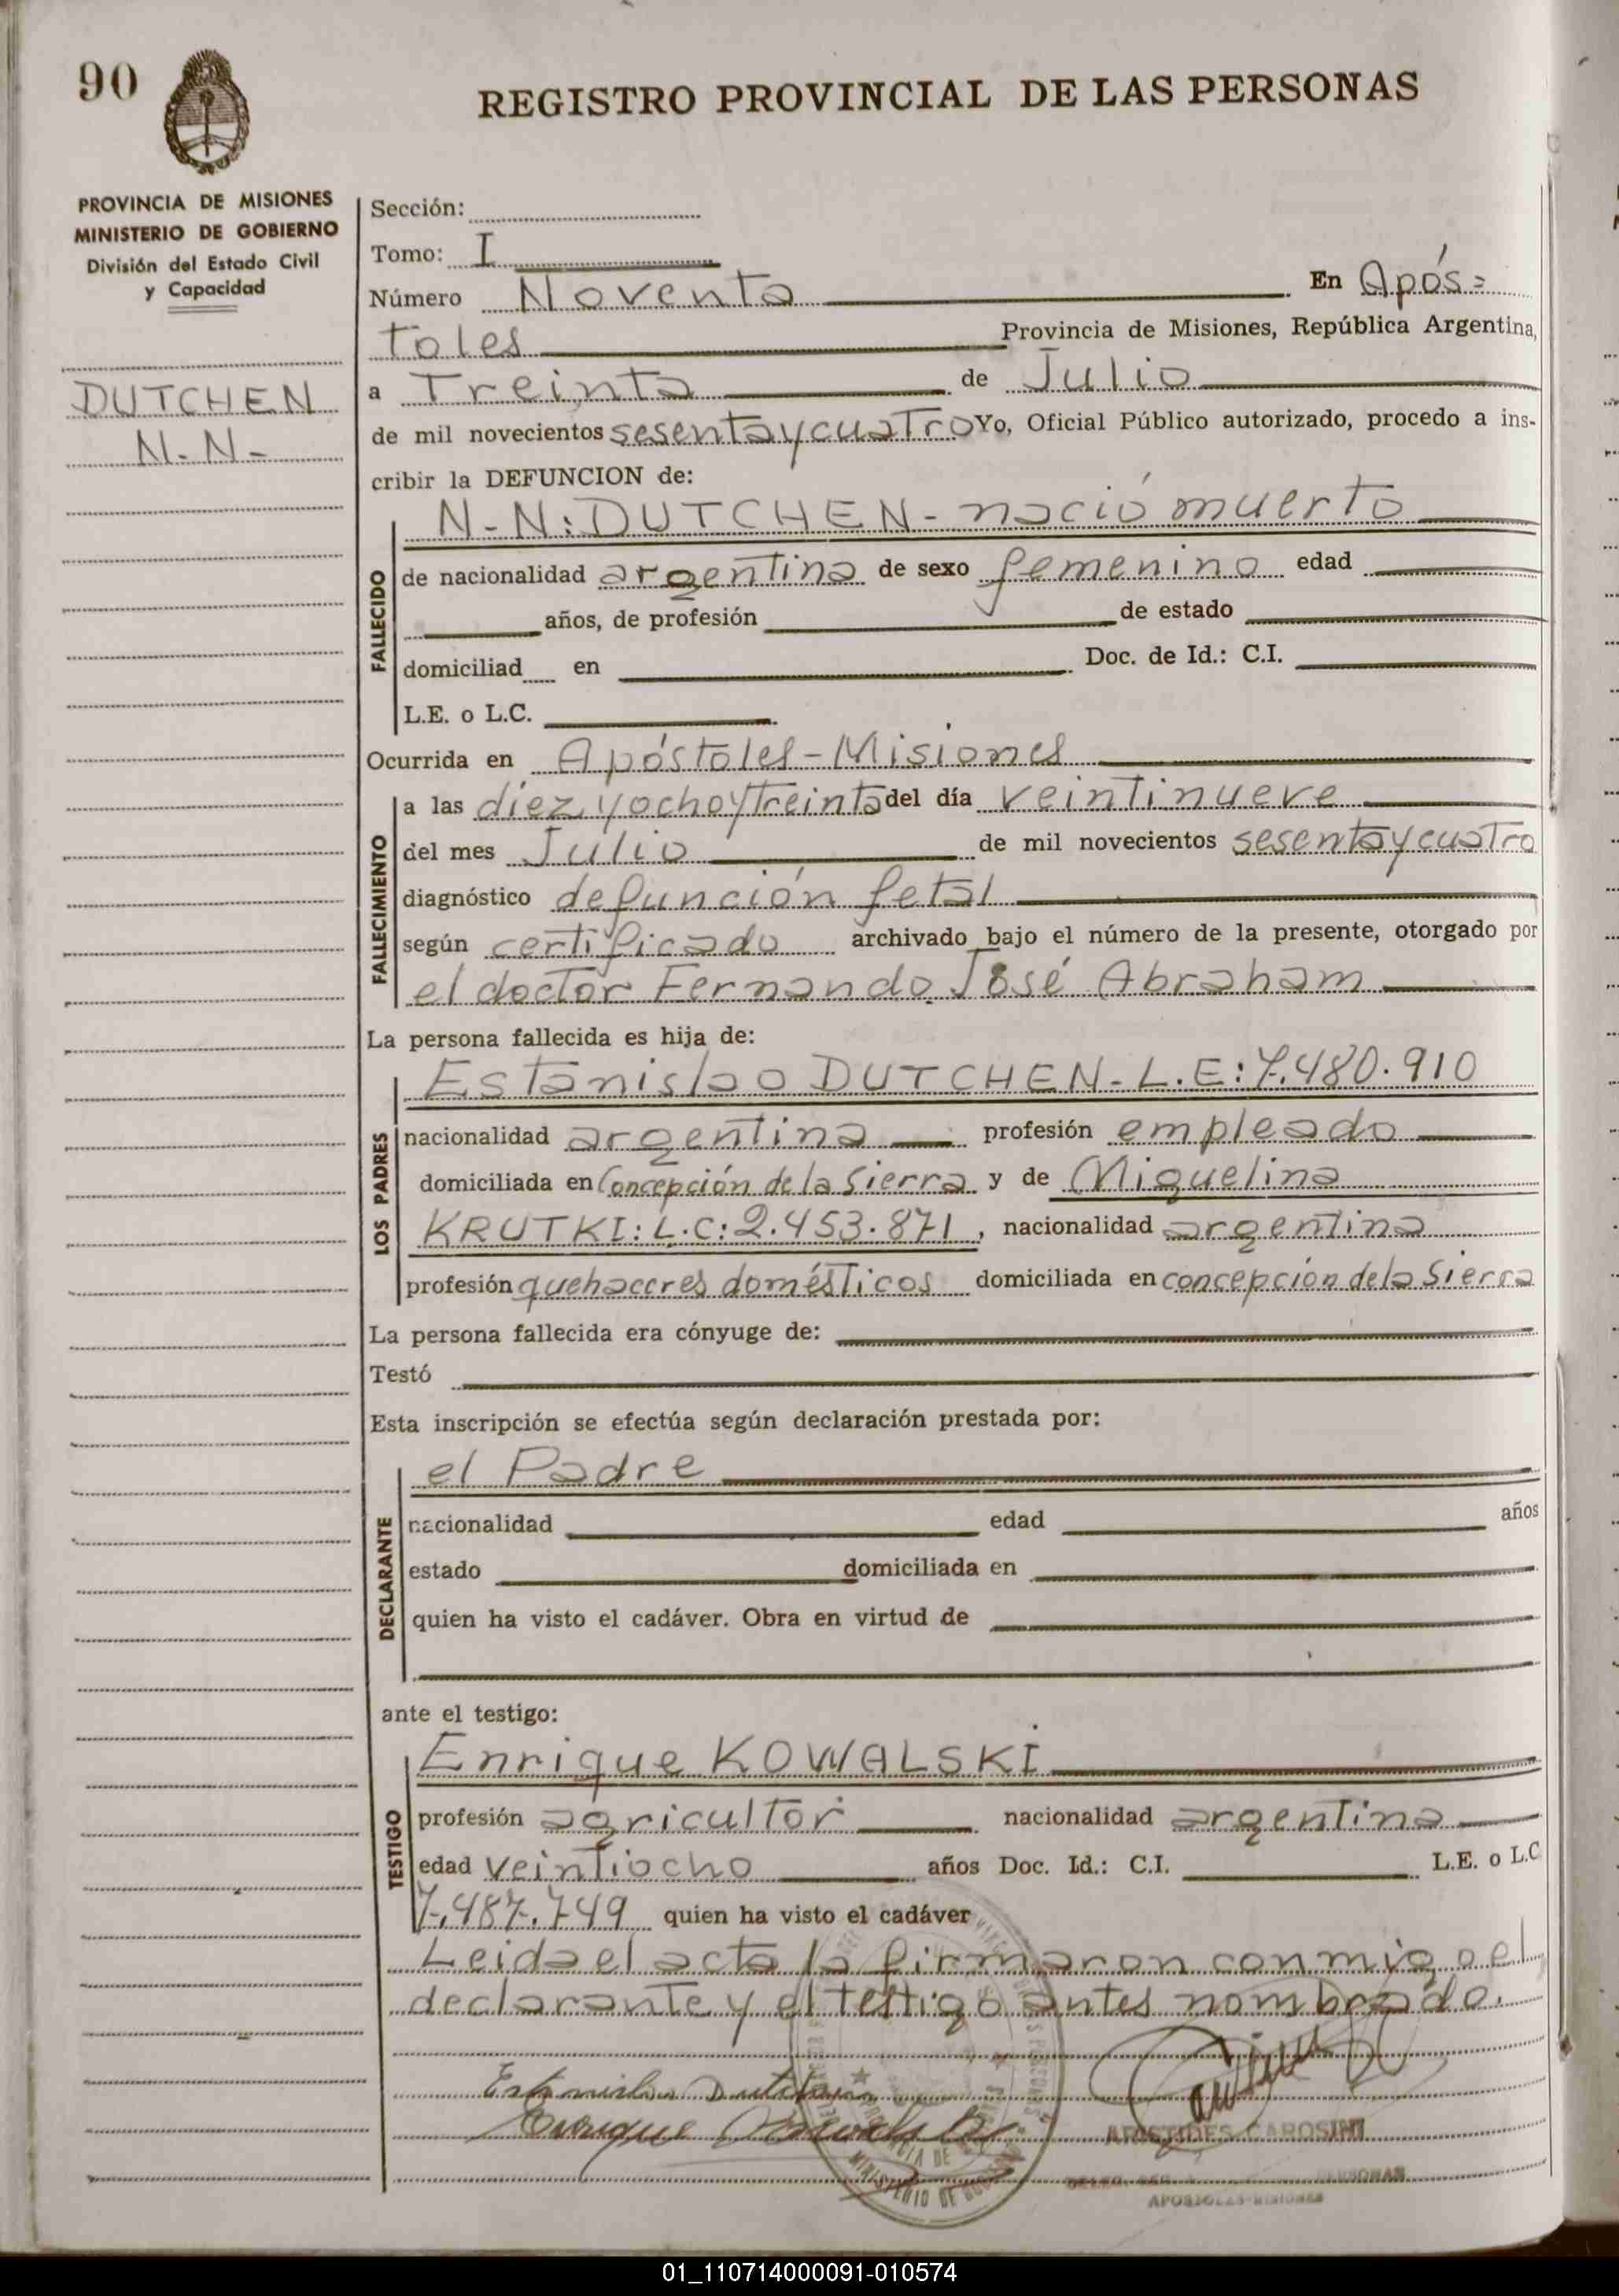 90
REGISTRO PROVINCIAL DE LAS PERSONAS
PROVINCIA DE MISIONES
MINISTERIO DE GOBIERNO
División del Estado Civil
y Capacidad
DUTCHEN
N.N-
Sección:
Tomo: I
Número Noventa En Após=
toles Provincia de Misiones, República Argentina,
a Treinta de Julio
de mil novecientos sesenta y cuatro Yo, Oficial Público autorizado, procedo a ins-
cribir la DEFUNCION de:
N-N: DUTCHEN- nació muerto
FALLECIDO
de nacionalidad argentina de sexo femenino edad
años, de profesión de estado
domiciliad en Doc. de Id.: C.I.
L.E. o L.C.
Ocurrida en Apóstoles-Misiones
FALLECIMIENTO
a las diez y ocho y treinta del día veintinueve
del mes Julio de mil novecientos sesenta y cuatro
diagnóstico defunción fetal
según certificado archivado bajo el número de la presente, otorgado por
el doctor Fernando José Abraham
La persona fallecida es hija de:
LOS PADRES
Estanislao DUTCHEN-L.E:7.480.910
nacionalidad argentina profesión empleado
domiciliada en Concepción de la Sierra y de Miguelina
KRUTKI: L.C:2.453.871, nacionalidad argentina
profesión quehaceres domésticos domiciliada en concepción de la Sierra
La persona fallecida era cónyuge de:
Testó
Esta inscripción se efectúa según declaración prestada por:
DECLARANTE
el Padre
nacionalidad edad años
estado domiciliada en
quien ha visto el cadáver. Obra en virtud de
ante el testigo:
TESTIGO
Enrique KOWALSKI
profesión agricultor nacionalidad argentina
edad veintiocho años Doc. Id.: C.I. L.E. o L.C
7.487.749 quien ha visto el cadáver
Leida el acta la firmaron conmigo el
declarante y el testigo antes nombrado.
Estanislao Dutchen
Enrique Kowalski
ARISTIDES CAROSINI
PERSONAS
APOSTOLES-MISIONES
MINISTERIO DE GOBIERNO
01_110714000091-010574